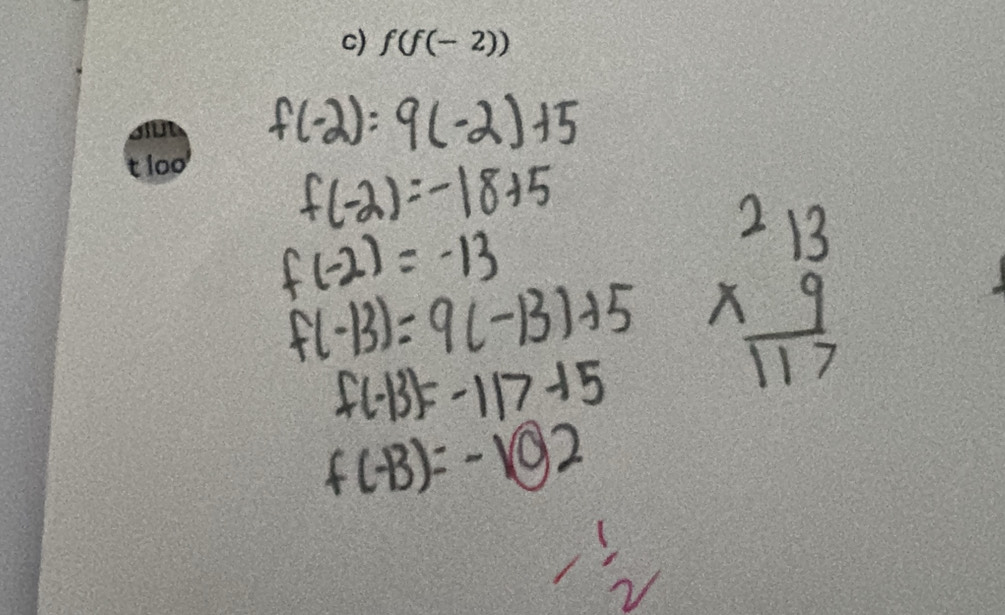 c) f(f(− 2))
t loo
f(-2) = 9(-2)+5
f(-2) = -18+5
f(-2) = -13
f(-13) = 9(-13)+5
f(-13) = -117+5
f(-13) = -102
2 13
x 9
117
- 1/2